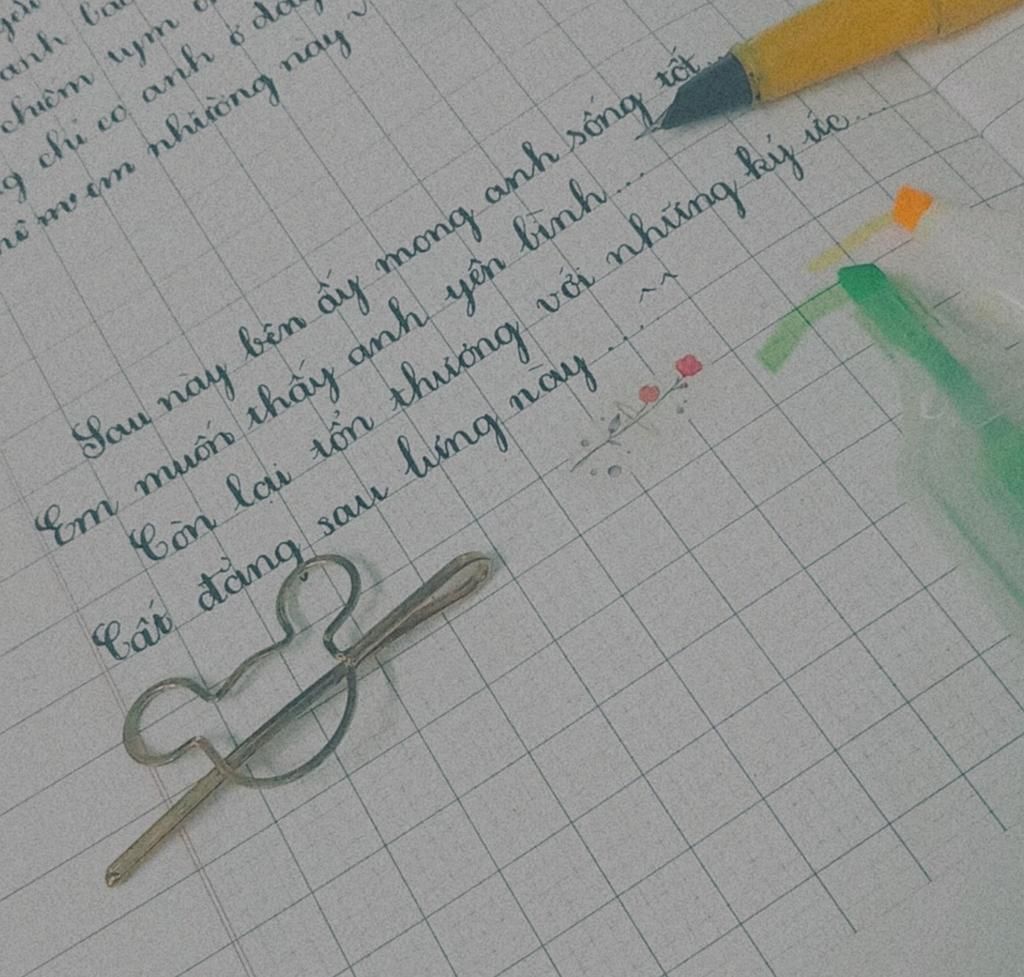 anh
chiếm
chỉ có anh ở đây
em nhường này ~
Sau này bên ấy mong anh sống tốt...
Em muốn thấy anh yên bình...
Còn lại tổn thương với những ký ức...
Cất đằng sau lưng này... ^^